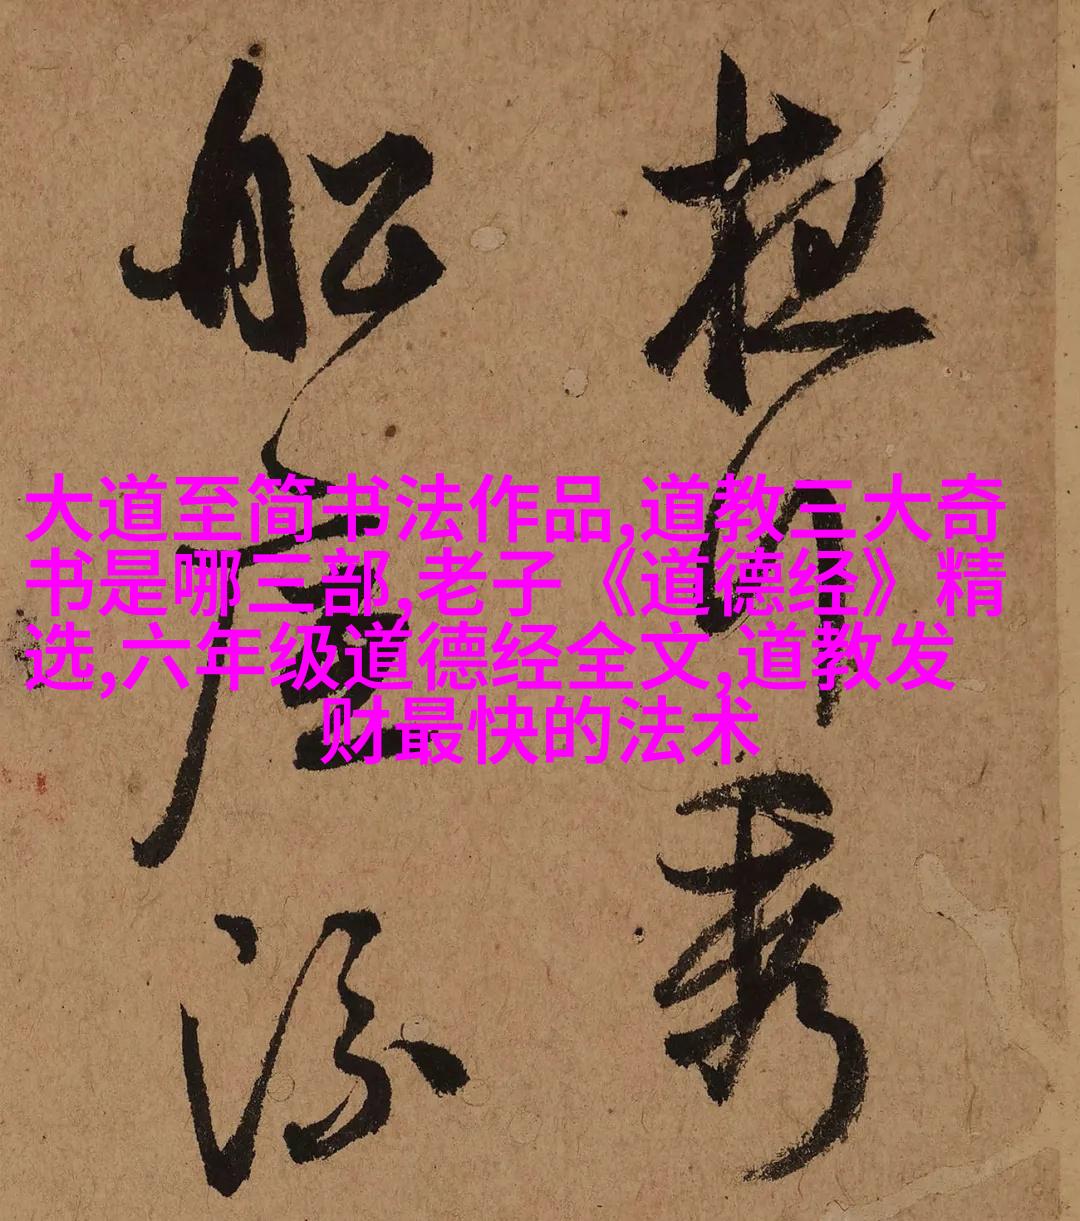 大道至简书法作品,道教三大奇
书是哪三部,老子《道德经》精
选,六年级道德经全文,道教发
财最快的法术